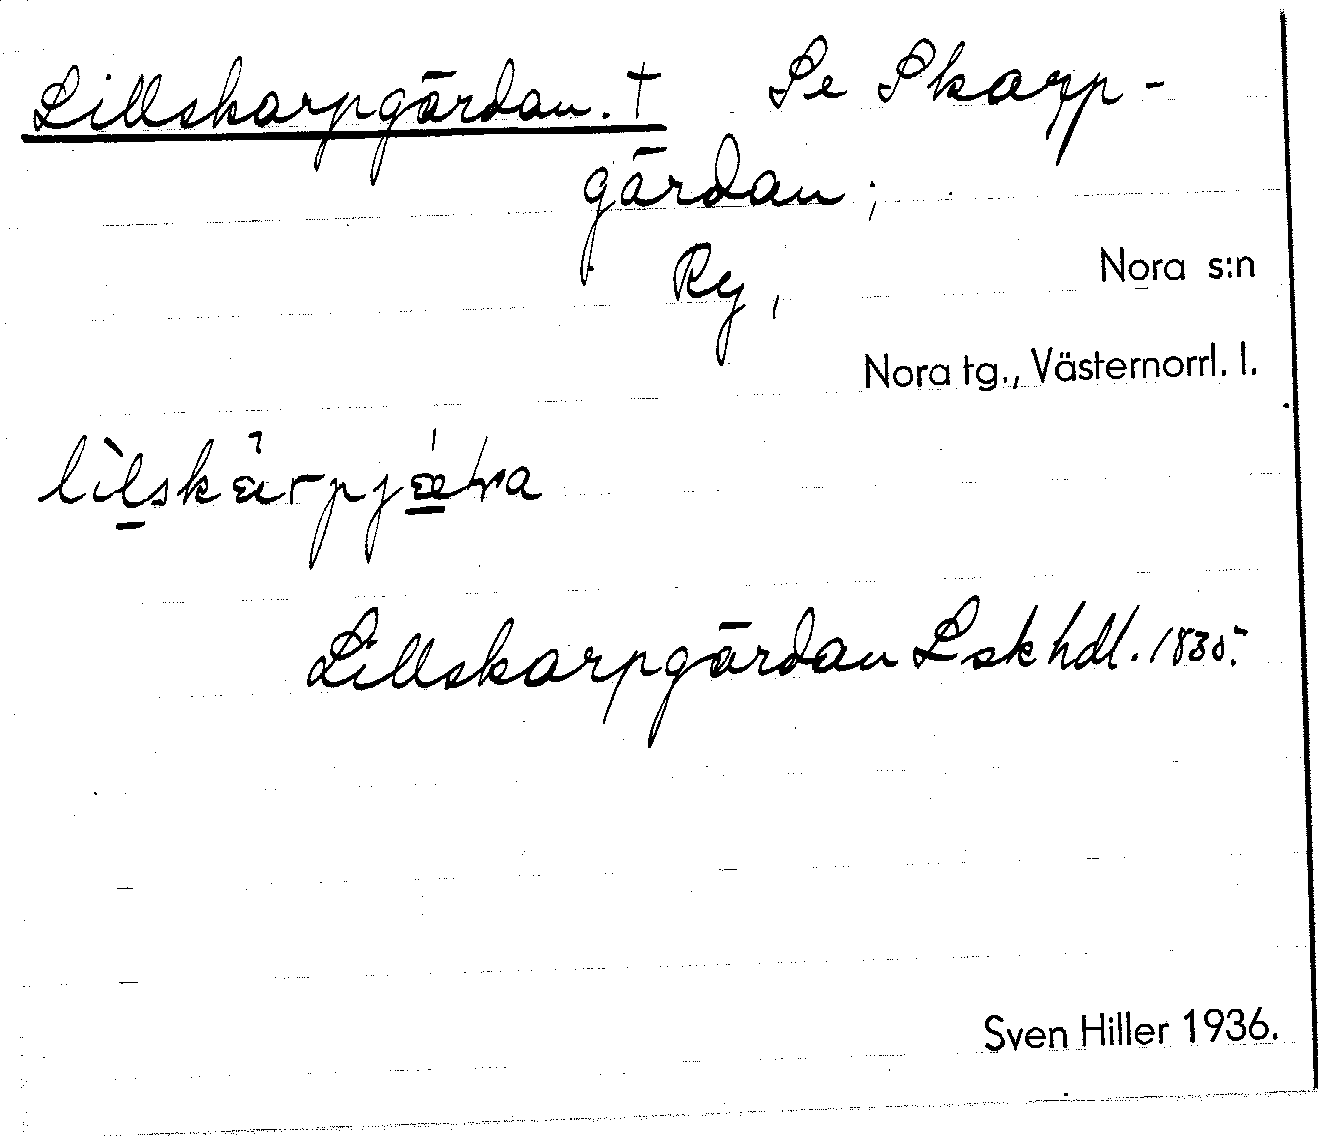 Lillskarpgärdan. † Se Skarp-
gärdan;
Ry, Nora s:n
Nora tg., Västernorrl. l.
Lillskarpgärdan Lskhdl. 1835.
Sven Hiller 1936.